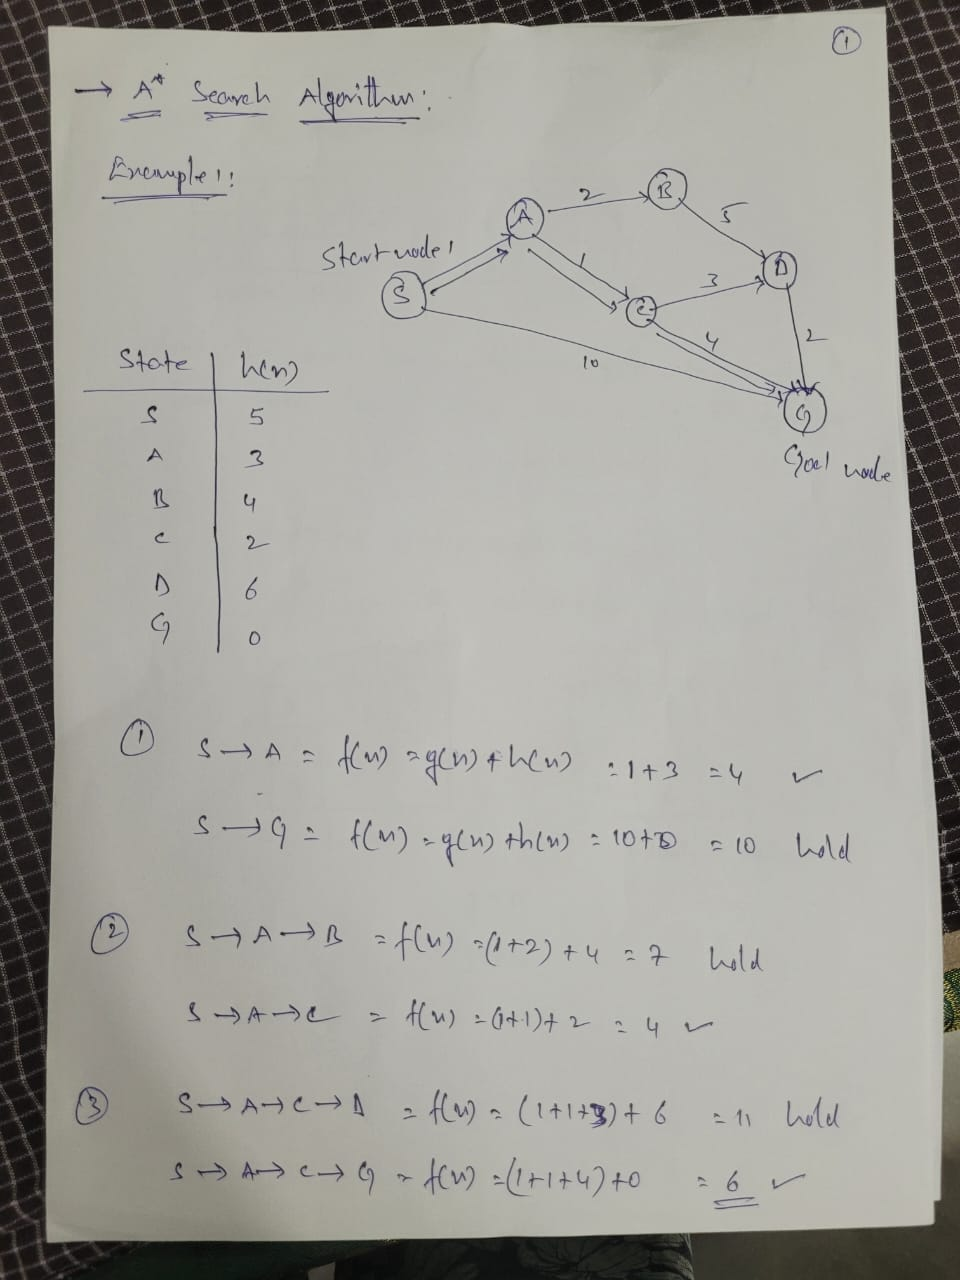 ①
→ A* Search Algorithm:
Example 1:
Start node
S
A
2
B
5
D
1
C
3
4
2
10
G
Goal node
State | h(n)
S 5
A 3
B 4
C 2
D 6
G 0
① S → A = f(n) = g(n) + h(n) = 1+3 = 4 ✓
S → G = f(n) = g(n) + h(n) = 10+0 = 10 hold
② S → A → B = f(n) = (1+2) + 4 = 7 hold
S → A → C = f(n) = (1+1) + 2 = 4 ✓
③ S → A → C → D = f(n) = (1+1+3) + 6 = 11 hold
S → A → C → G = f(n) = (1+1+4) + 0 = 6 ✓